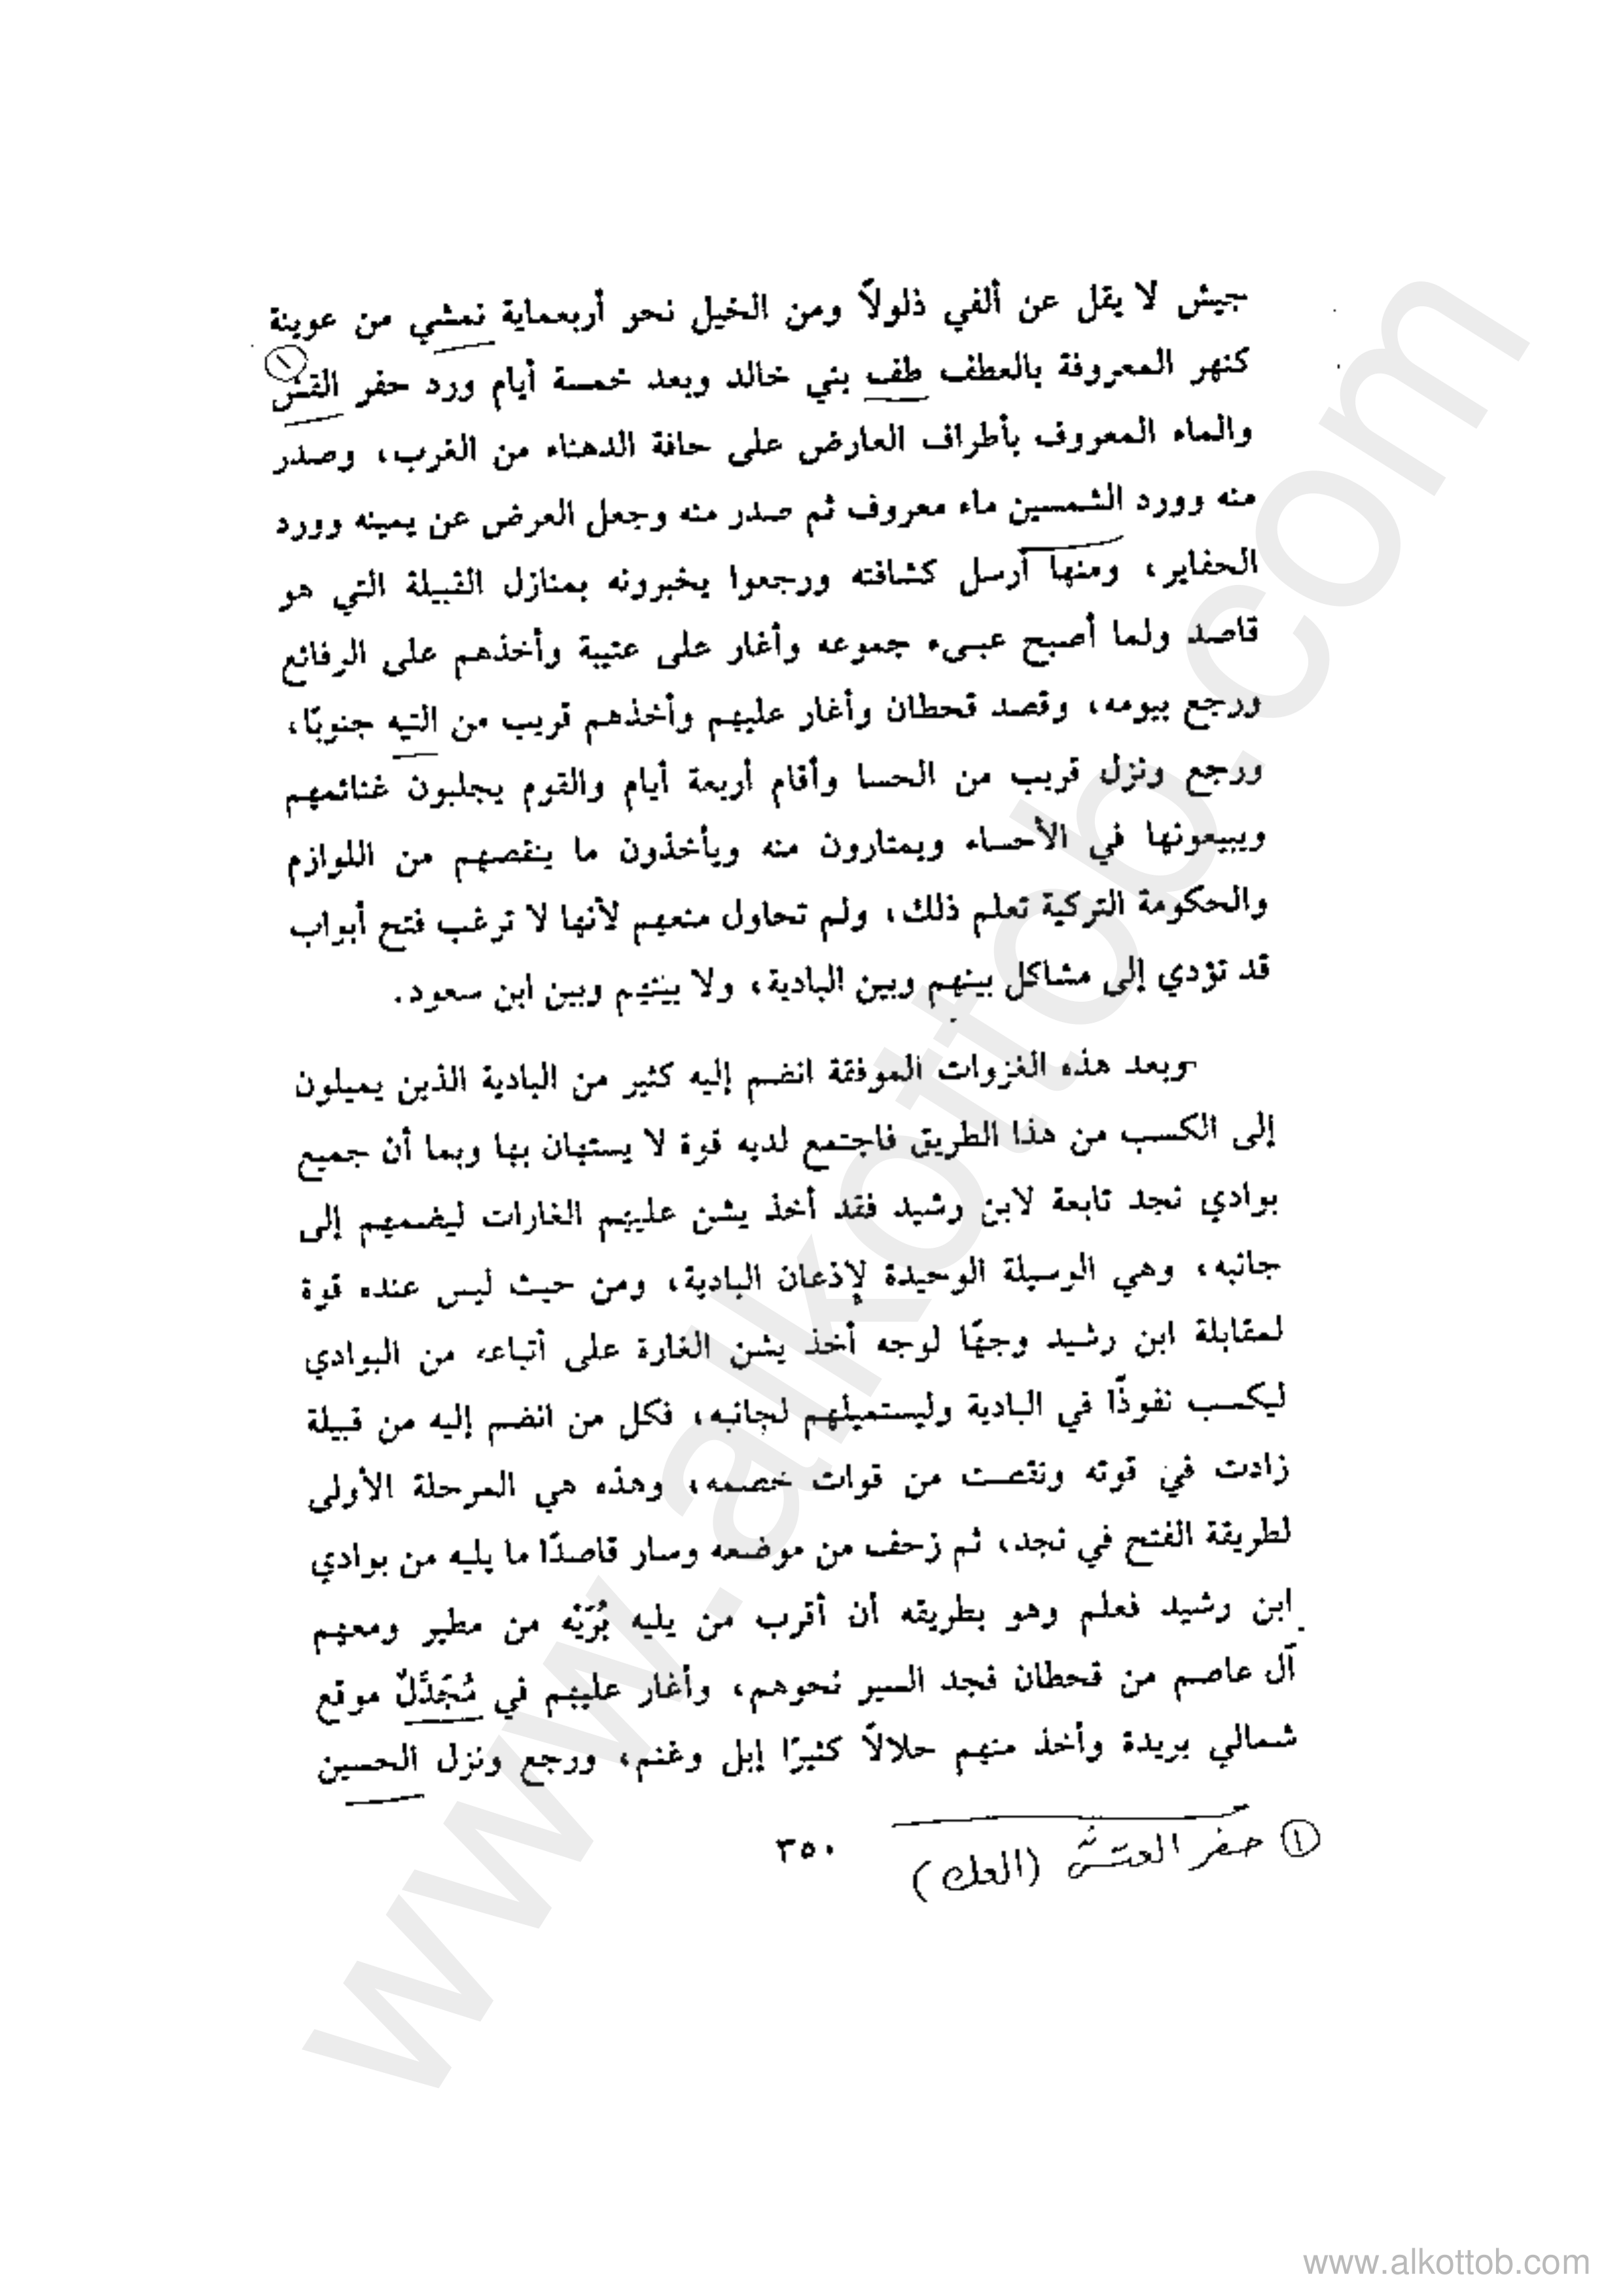 جيش لا يقل عن ألفي ذلولاً ومن الخيل نحو أربعماية نمشي من عوينة
كنهر المعروفة بالعطف طف بني خالد وبعد خمسة أيام ورد حفر القش ١
والماء المعروف بأطراف العارض على حافة الدهناء من الغرب، وصدر
منه وورد الشمسين ماء معروف ثم صدر منه وجعل العرض عن يمينه وورد
الحفاير، ومنها أرسل كشافته ورجعوا يخبرونه بمنازل القبيلة التي هو
قاصد ولما أصبح عبىء جموعه وأغار على عتيبة وأخذهم على الرفائع
ورجع بيومه، وقصد قحطان وأغار عليهم وأخذهم قريب من التيه جنوبًا،
ورجع ونزل قريب من الحسا وأقام أربعة أيام والقوم يجلبون غنائمهم
ويبيعونها في الأحساء ويمتارون منه ويأخذون ما ينقصهم من اللوازم
والحكومة التركية تعلم ذلك، ولم تحاول منعهم لأنها لا ترغب فتح أبواب
قد تؤدي إلى مشاكل بينهم وبين البادية، ولا بينهم وبين ابن سعود.
وبعد هذه الغزوات الموفقة انضم إليه كثير من البادية الذين يميلون
إلى الكسب من هذا الطريق فاجتمع لديه قوة لا يستهان بها وبما أن جميع
بوادي نجد تابعة لابن رشيد فقد أخذ يشن عليهم الغارات ليضمهم إلى
جانبه، وهي الوسيلة الوحيدة لإذعان البادية، ومن حيث ليس عنده قوة
لمقابلة ابن رشيد وجهًا لوجه أخذ يشن الغارة على أتباعه من البوادي
ليكسب نفوذًا في البادية وليستميلهم لجانبه، فكل من انضم إليه من قبيلة
زادت في قوته ونقصت من قوات خصمه، وهذه هي المرحلة الأولى
لطريقة الفتح في نجد، ثم زحف من موضعه وسار قاصدًا ما يليه من بوادي
ابن رشيد فعلم وهو بطريقه أن أقرب من يليه بُرَيْه من مطير ومعهم
آل عاصم من قحطان فجد السير نحوهم، وأغار عليهم في مُجَدَّلْ موقع
شمالي بريدة وأخذ منهم حلالاً كثيرًا إبل وغنم، ورجع ونزل الحسين
١ حفر العتش (العك)
٣٥٠
www.alkottob.com
www.alkottob.com